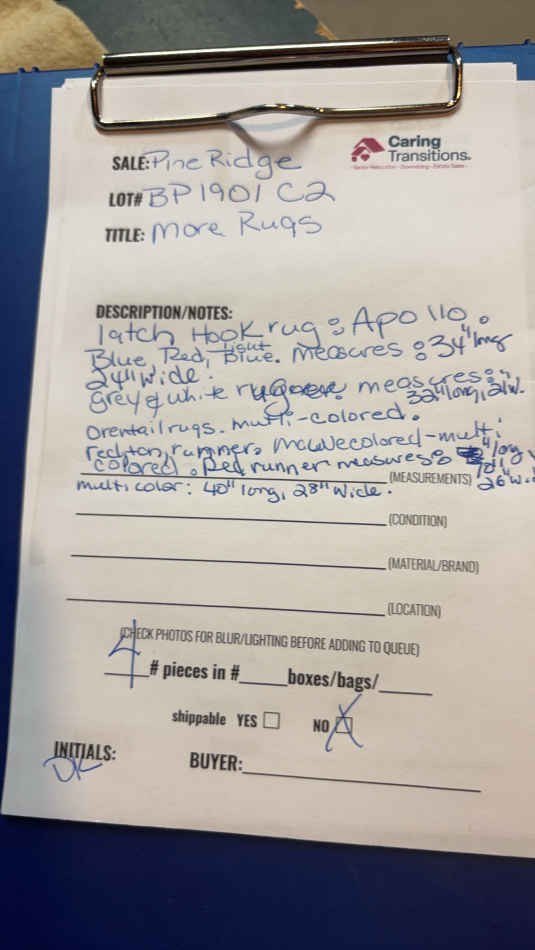 Caring
Transitions.
SALE: Pine Ridge
LOT# BP1901 C2
TITLE: More Rugs
DESCRIPTION/NOTES:
latch Hook rug: Apollo.
Blue, Red, light Blue. measures: 34" long
24" wide.
grey & white rug measures:
32" long, 21" w.
Orentail rugs. multi-colored.
red, ton, runner. mauve colored - multi
colored. Red runner measures: long
26" w.
(MEASUREMENTS)
multi color: 40" long, 28" wide.
(CONDITION)
(MATERIAL/BRAND)
(LOCATION)
(CHECK PHOTOS FOR BLUR/LIGHTING BEFORE ADDING TO QUEUE)
4 # pieces in #_____boxes/bags/_____
shippable YES NO
INITIALS: DK
BUYER: